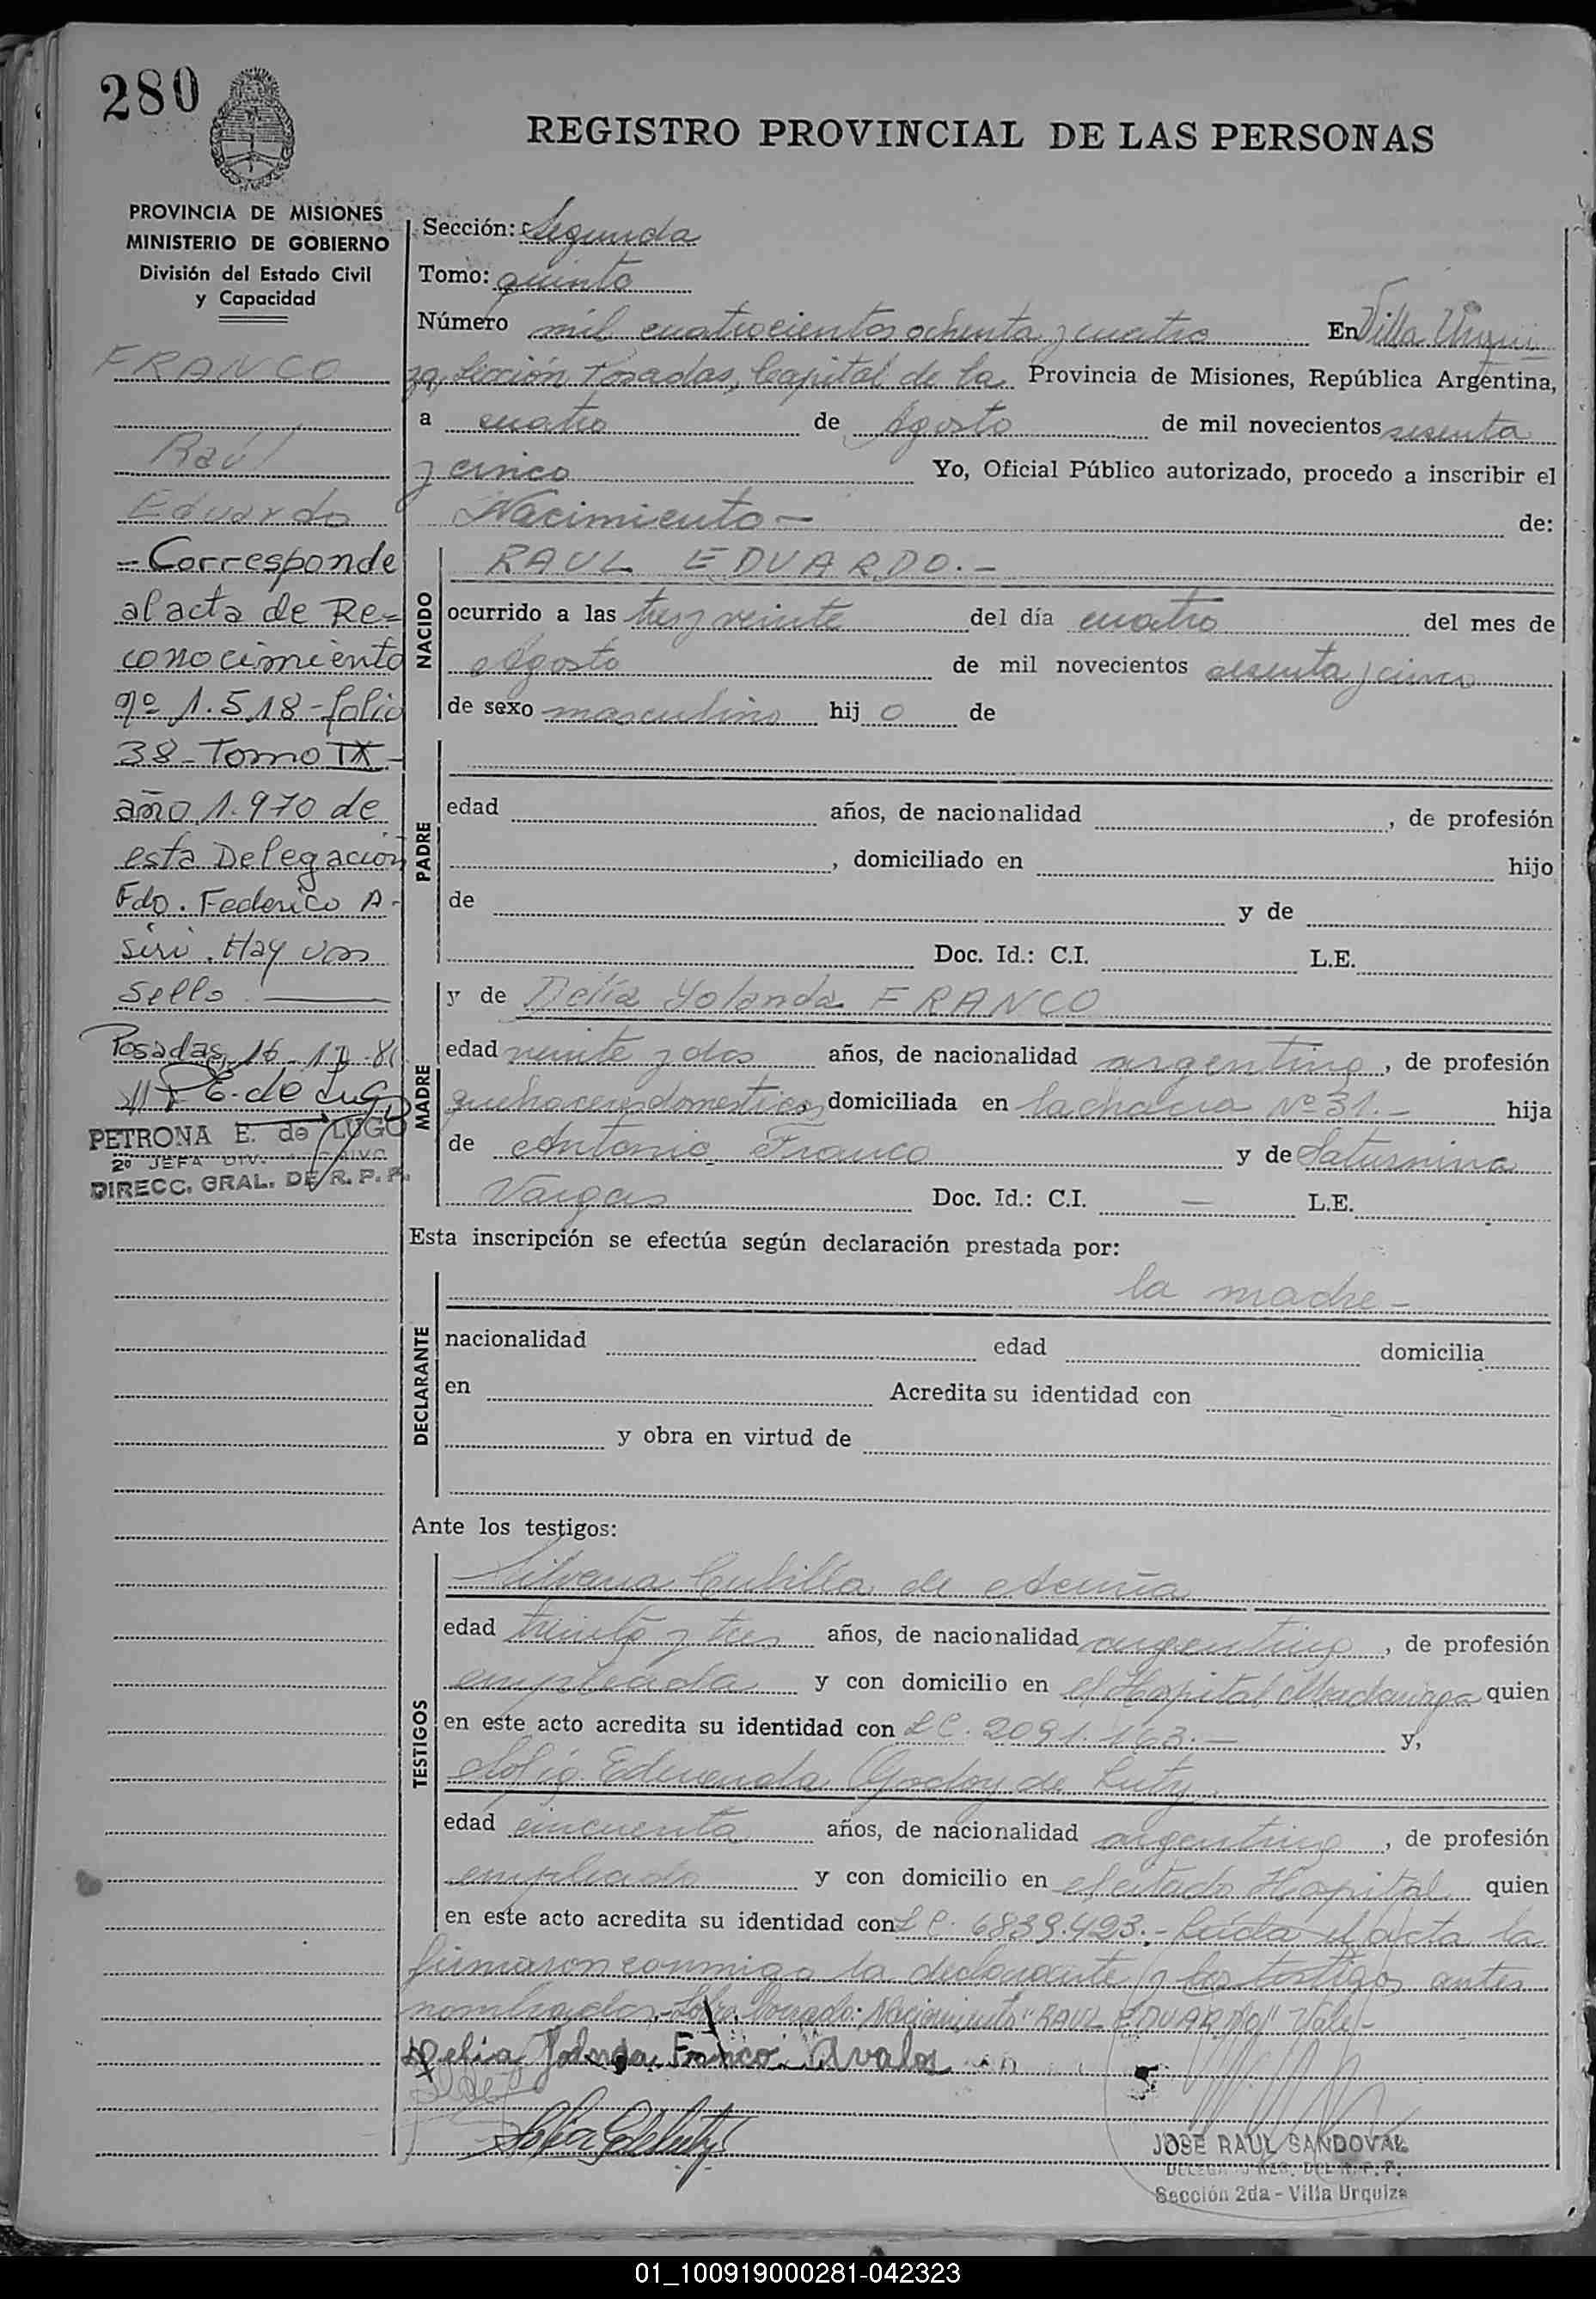 280
REGISTRO PROVINCIAL DE LAS PERSONAS
PROVINCIA DE MISIONES
MINISTERIO DE GOBIERNO
División del Estado Civil
y Capacidad
FRANCO
Raúl
Eduardo
- Corresponde
al acta de Re=
conocimiento
nº 1.518 - folio
38 - Tomo IX -
año 1.970 de
esta Delegación
Fdo. Federico A-
siri. Hay un
sello
Posadas, 16
P E. de Lugo
PETRONA E. de LUGO
2º JEFA DIV. ARCHIVO
DIRECC. GRAL. DE R. P. P.
Sección: Segunda
Tomo: quinto
Número mil cuatrocientos ochenta y cuatro En Villa Urqui
za, Sección Posadas, Capital de la Provincia de Misiones, República Argentina,
a cuatro de Agosto de mil novecientos sesenta
y cinco Yo, Oficial Público autorizado, procedo a inscribir el
Nacimiento - de:
NACIDO
RAUL EDUARDO. -
ocurrido a las tres y veinte del día cuatro del mes de
Agosto de mil novecientos sesenta y cinco
de sexo masculino hij o de
PADRE
edad años, de nacionalidad , de profesión
, domiciliado en hijo
de y de
Doc. Id.: C.I. L.E.
MADRE
y de Delia Yolanda FRANCO
edad veinte y dos años, de nacionalidad argentina, de profesión
quehaceres domesticos, domiciliada en la chacra Nº 31. - hija
de Antonio Franco y de Saturnina
Vargas Doc. Id.: C.I. — L.E.
Esta inscripción se efectúa según declaración prestada por:
DECLARANTE
la madre -
nacionalidad edad domicilia
en Acredita su identidad con
y obra en virtud de
Ante los testigos:
TESTIGOS
Silveria Cubilla de Acuña
edad treinta y tres años, de nacionalidad argentina, de profesión
empleada y con domicilio en el Hospital Madariaga quien
en este acto acredita su identidad con L C. 2091.163. - y,
Sofia Edmunda Godoy de Luty
edad cincuenta años, de nacionalidad argentina, de profesión
empleada y con domicilio en el citado Hospital quien
en este acto acredita su identidad con L C. 6839.423. - Leida el acta la
firmaron conmigo la declarante y los testigos antes
nombrados. - Sobre borrado: Nacimiento "RAUL EDUARDO" Vale -
Delia Yolanda Franco Avalos
JOSE RAUL SANDOVAL
DELEGADO REG. DEL R. P. P.
Sección 2da - Villa Urquiza
01_100919000281-042323